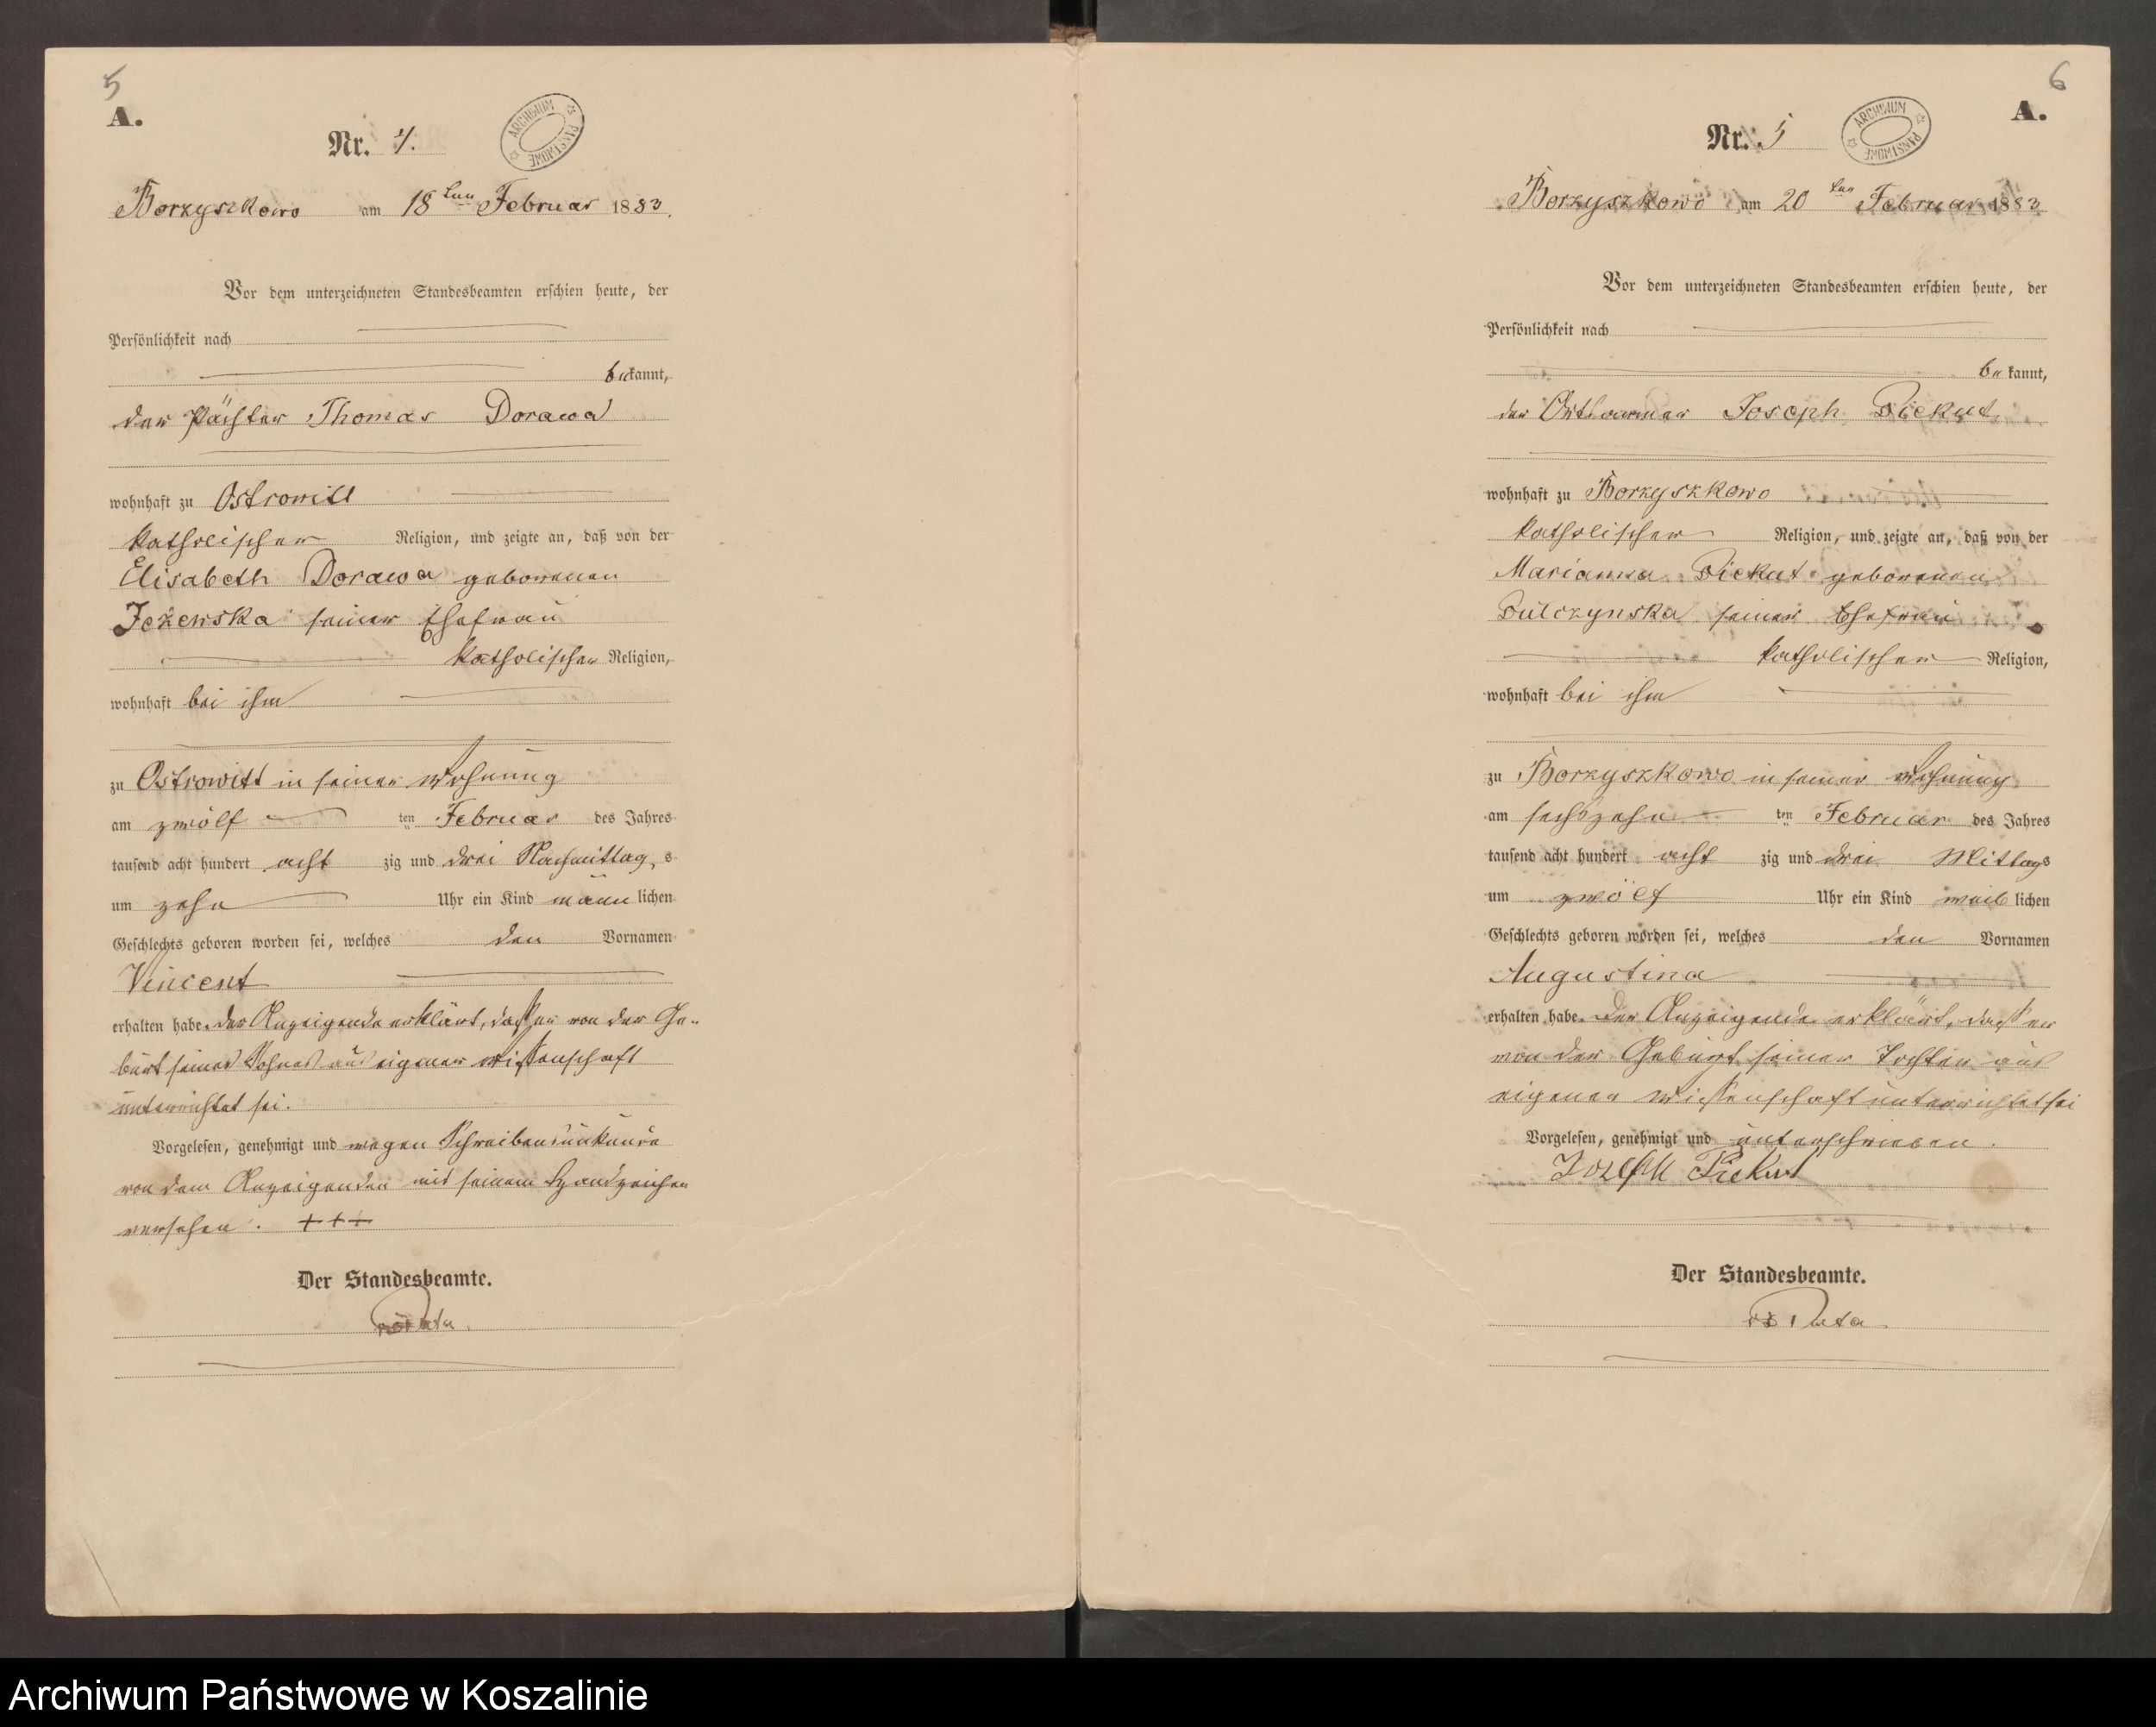 5
A.
Nr. 4.
ARCHIWUM PAŃSTWOWE
Borzyszkowo am 18ten Februar 1883.
Vor dem unterzeichneten Standesbeamten erschien heute, der
Persönlichkeit nach
bekannt,
der Pächter Thomas Dorawa
wohnhaft zu Ostrowitt
katholischer Religion, und zeigte an, daß von der
Elisabeth Dorawa geborenen
Jeżewska seiner Ehefrau
katholischer Religion,
wohnhaft bei ihm
zu Ostrowitt in seiner Wohnung
am zwölf ten Februar des Jahres
tausend acht hundert acht zig und drei Nachmittag s
um zehn Uhr ein Kind männlichen
Geschlechts geboren worden sei, welches den Vornamen
Vincent
erhalten habe. Der Anzeigende erklärt, dass er von der Ge-
burt seines Sohnes aus eigener Wissenschaft
unterrichtet sei.
Vorgelesen, genehmigt und wegen Schreibensunkunde
von dem Anzeigenden mit seinem Handzeichen
versehen. +++
Der Standesbeamte.
6
A.
Nr. 5
ARCHIWUM PAŃSTWOWE
Borzyszkowo am 20ten Februar 1883
Vor dem unterzeichneten Standesbeamten erschien heute, der
Persönlichkeit nach
bekannt,
der Ortsarmer Joseph Piekut
wohnhaft zu Borzyszkowo
katholischer Religion, und zeigte an, daß von der
Marianna Piekut geborenen
seiner Ehefrau
katholischer Religion,
wohnhaft bei ihm
zu Borzyszkowo in seiner Wohnung
am sechszehn ten Februar des Jahres
tausend acht hundert acht zig und drei Mittags
um zwölf Uhr ein Kind weiblichen
Geschlechts geboren worden sei, welches den Vornamen
Augustina
erhalten habe. Der Anzeigende erklärt, dass er
von der Geburt seiner Tochter aus
eigener Wissenschaft unterrichtet sei
Vorgelesen, genehmigt und unterschrieben.
Jozeph Piekut
Der Standesbeamte.
Archiwum Państwowe w Koszalinie